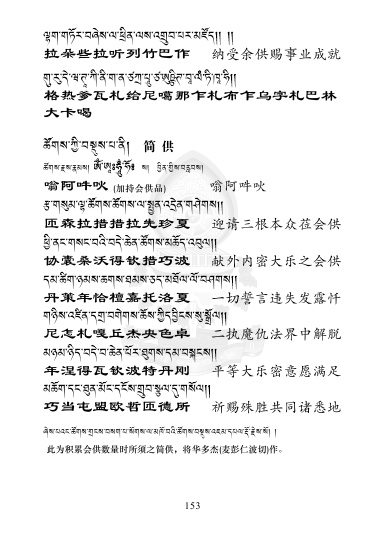 ལྷག་གཏོར་བཞེས་ལ་ཕྲིན་ལས་འགྲུབ་པར་མཛོད།། །།
拉朵些拉听列竹巴作 纳受余供赐事业成就
格热爹瓦札给尼噶那乍札布乍乌字札巴林
大卡喝
ཚོགས་ཀྱི་བསྡུས་པ་ནི། 简 供
ཚོགས་རྫས་རྣམས། ཨོཾ་ཨཱཿཧཱུྃ་ཧོཿ ས། བྱིན་གྱིས་བརླབས།
嗡阿吽吙 (加持会供品) 嗡阿吽吙
རྩ་གསུམ་ལྷ་ཚོགས་ཚོགས་ལ་སྤྱན་འདྲེན་གཤེགས།།
匝森拉措措拉先珍夏 迎请三根本众莅会供
ཕྱི་ནང་གསང་བའི་བདེ་ཆེན་ཚོགས་མཆོད་འབུལ།།
协囊桑沃得钦措巧波 献外内密大乐之会供
དམ་ཚིག་ཉམས་ཆགས་ཐམས་ཅད་མཐོལ་ལོ་བཤགས།།
丹策年恰檀嘉托洛夏 一切誓言违失发露忏
གཉིས་འཛིན་དགྲ་བགེགས་ཆོས་ཀྱི་དབྱིངས་སུ་སྒྲོལ།།
尼怎札嘎丘杰央色卓 二执魔仇法界中解脱
མཉམ་ཉིད་བདེ་བ་ཆེན་པོར་ཐུགས་དམ་བསྐངས།།
年涅得瓦钦波特丹刚 平等大乐密意愿满足
མཆོག་དང་ཐུན་མོང་དངོས་གྲུབ་སྩལ་དུ་གསོལ།།
巧当屯盟欧哲匝德所 祈赐殊胜共同诸悉地
此为积累会供数量时所须之简供，将华多杰(麦彭仁波切)作。
153